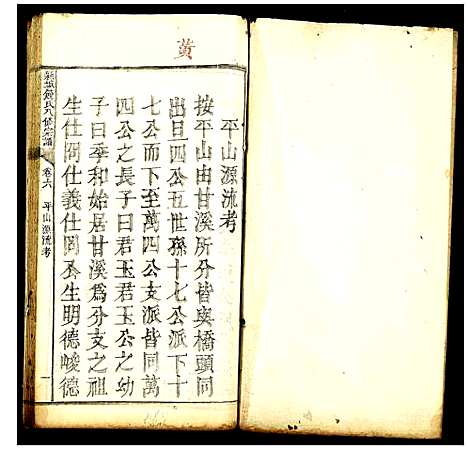 黄
平山源流考
按平山由甘溪所分皆與橋頭同
出旦四公五世孫十七公派下十
七公而下至萬四公支派皆同萬
四公之長子曰君玉君玉公之幼
子曰季和始居甘溪為分支之祖
生仕岡仕義仕岡公生明德峻德
鍾氏八修宗譜
卷六
平山源流考
一